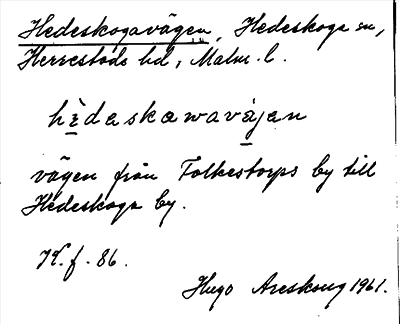 Hedeskogavägen, Hedeskoga sn,
Herrestads hd, Malm. l.
hèdeskawavàjen
vägen från Folkestorps by till
Hedeskoga by.
K. f. 86.
Hugo Areskoug 1961.